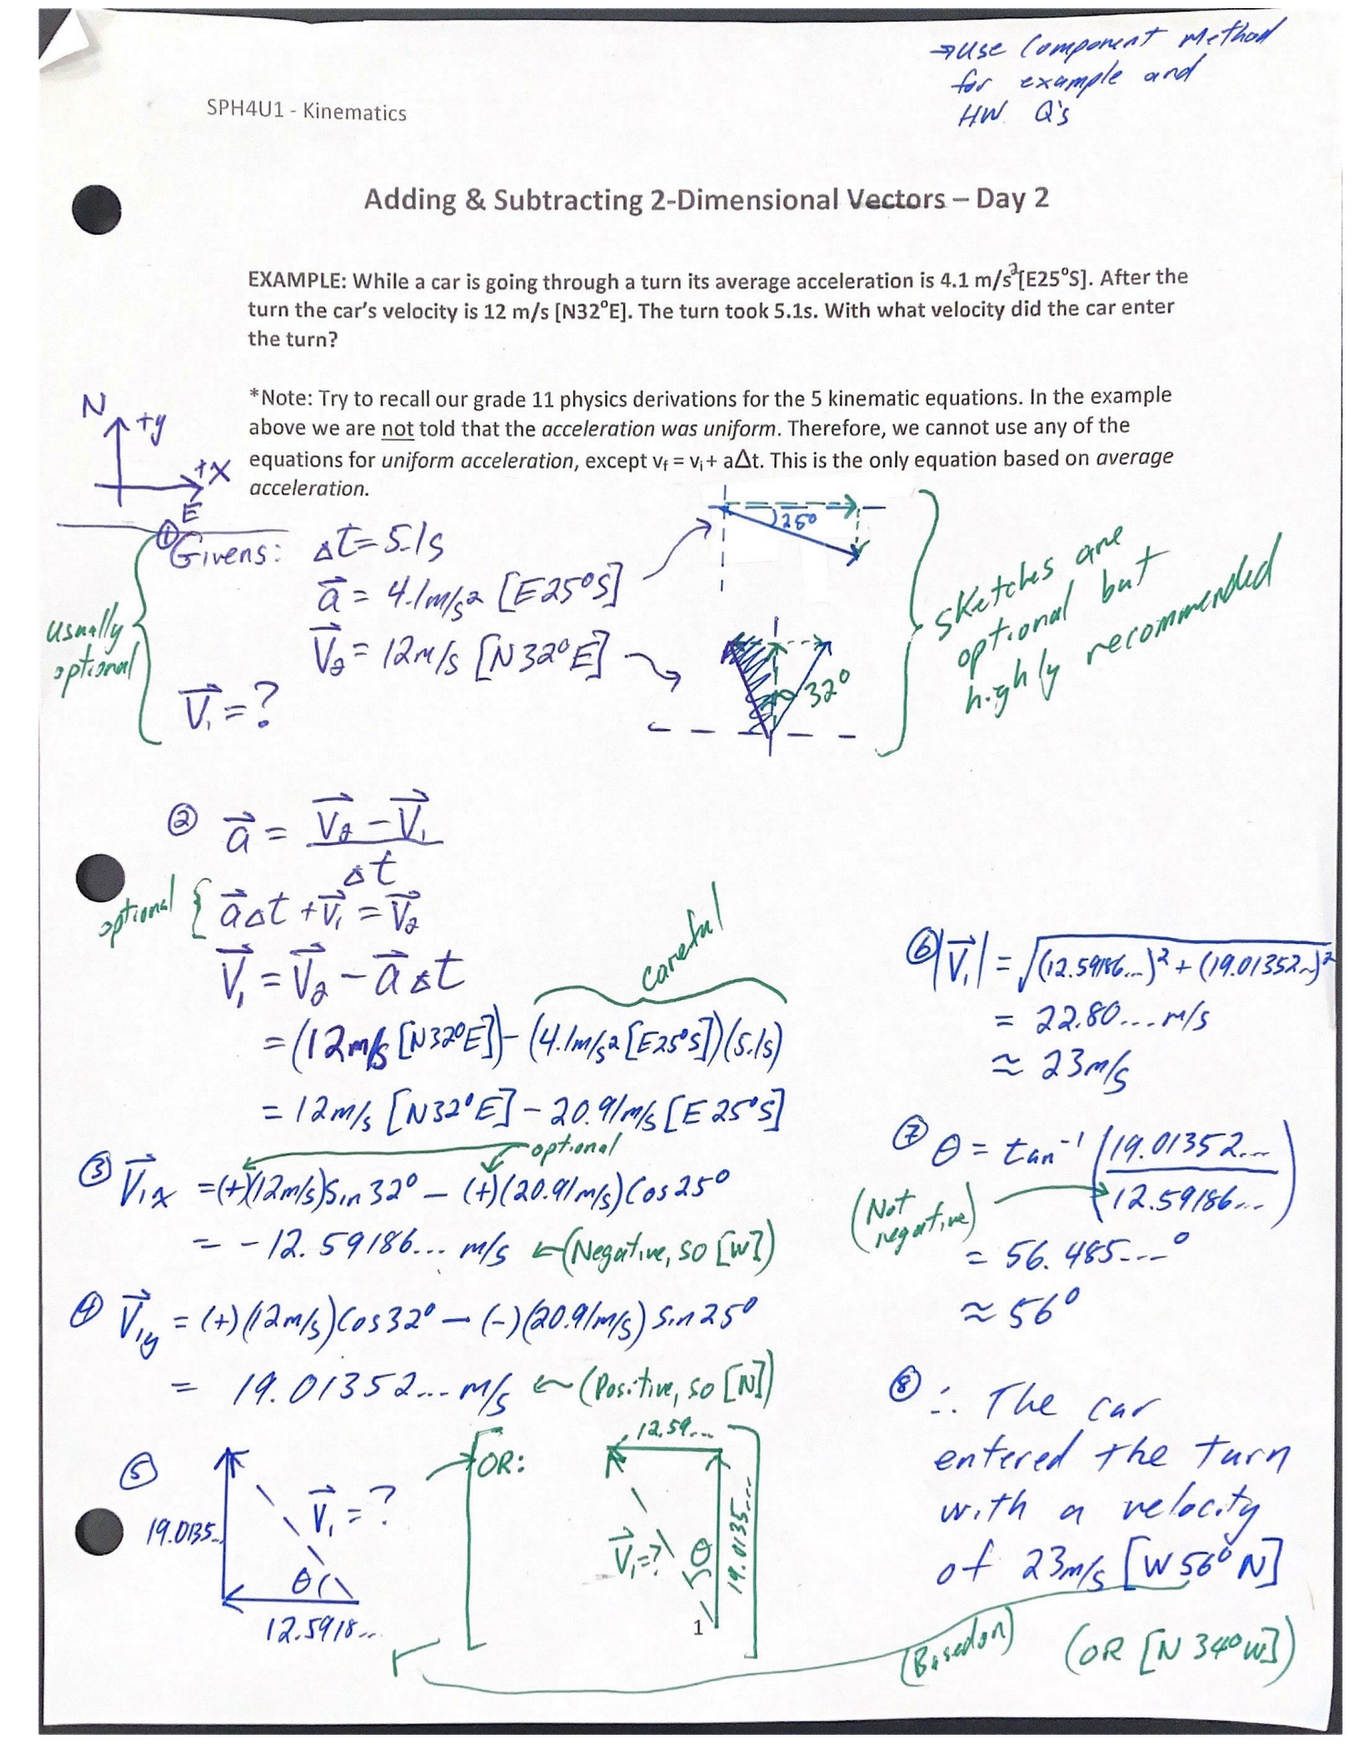 →use Component Method
for example and
HW Q's
SPH4U1 - Kinematics
Adding & Subtracting 2-Dimensional Vectors – Day 2
EXAMPLE: While a car is going through a turn its average acceleration is 4.1 m/s²[E25°S]. After the
turn the car's velocity is 12 m/s [N32°E]. The turn took 5.1s. With what velocity did the car enter
the turn?
*Note: Try to recall our grade 11 physics derivations for the 5 kinematic equations. In the example
above we are not told that the acceleration was uniform. Therefore, we cannot use any of the
equations for uniform acceleration, except vf = vi + aΔt. This is the only equation based on average
acceleration.
N
+y
+x
E
① Givens: Δt=5.1s
a⃗ = 4.1m/s² [E25°S]
V⃗₂ = 12m/s [N32°E]
V⃗₁ = ?
usually
optional
25°
32°
Sketches are
optional but
highly recommended
② a⃗ = (V⃗₂ - V⃗₁)/Δt
optional { a⃗Δt + V⃗₁ = V⃗₂
V⃗₁ = V⃗₂ - a⃗Δt
careful
= (12m/s [N32°E]) - (4.1m/s² [E25°S])(5.1s)
= 12m/s [N32°E] - 20.91m/s [E25°S]
optional
③ V⃗₁x = (+)(12m/s)Sin32° - (+)(20.91m/s)Cos25°
= -12.59186... m/s ←(Negative, so [W])
④ V⃗₁y = (+)(12m/s)Cos32° - (-)(20.91m/s)Sin25°
= 19.01352... m/s ←(Positive, so [N])
⑤
19.0135..
V⃗₁ = ?
θ
12.5918...
OR:
12.59...
V⃗₁=?
θ
19.0135...
1
⑥ |V⃗₁| = √((12.59186...)² + (19.01352...)²)
= 22.80... m/s
≈ 23m/s
⑦ θ = tan⁻¹(19.01352.../12.59186...)
(Not
negative)
= 56.485...°
≈ 56°
⑧ ∴ The car
entered the turn
with a velocity
of 23m/s [W56°N]
(Based on)
(OR [N 34°W])